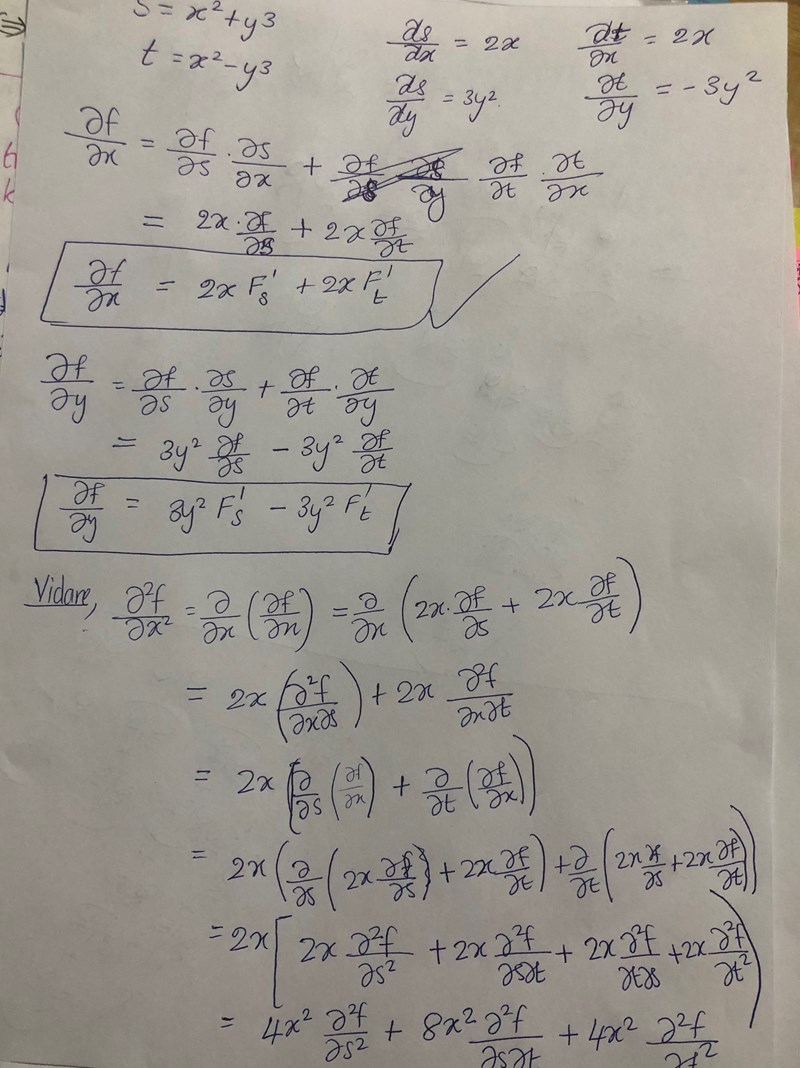 ⇒
s = x² + y3
t = x² - y3
ds/dx = 2x ∂t/∂x = 2x
ds/dy = 3y² ∂t/∂y = -3y²
∂f/∂x = ∂f/∂s · ∂s/∂x + ∂f/∂t · ∂t/∂x
= 2x · ∂f/∂s + 2x ∂f/∂t
∂f/∂x = 2x F's + 2x F't
∂f/∂y = ∂f/∂s · ∂s/∂y + ∂f/∂t · ∂t/∂y
= 3y² ∂f/∂s - 3y² ∂f/∂t
∂f/∂y = 3y² F's - 3y² F't
Vidare, ∂²f/∂x² = ∂/∂x (∂f/∂x) = ∂/∂x (2x · ∂f/∂s + 2x ∂f/∂t)
= 2x (∂²f/∂x∂s) + 2x ∂²f/∂x∂t
= 2x (∂/∂s (∂f/∂x) + ∂/∂t (∂f/∂x))
= 2x (∂/∂s (2x ∂f/∂s + 2x ∂f/∂t) + ∂/∂t (2x ∂f/∂s + 2x ∂f/∂t))
= 2x [2x ∂²f/∂s² + 2x ∂²f/∂s∂t + 2x ∂²f/∂t∂s + 2x ∂²f/∂t²)
= 4x² ∂²f/∂s² + 8x² ∂²f/∂s∂t + 4x² ∂²f/∂t²